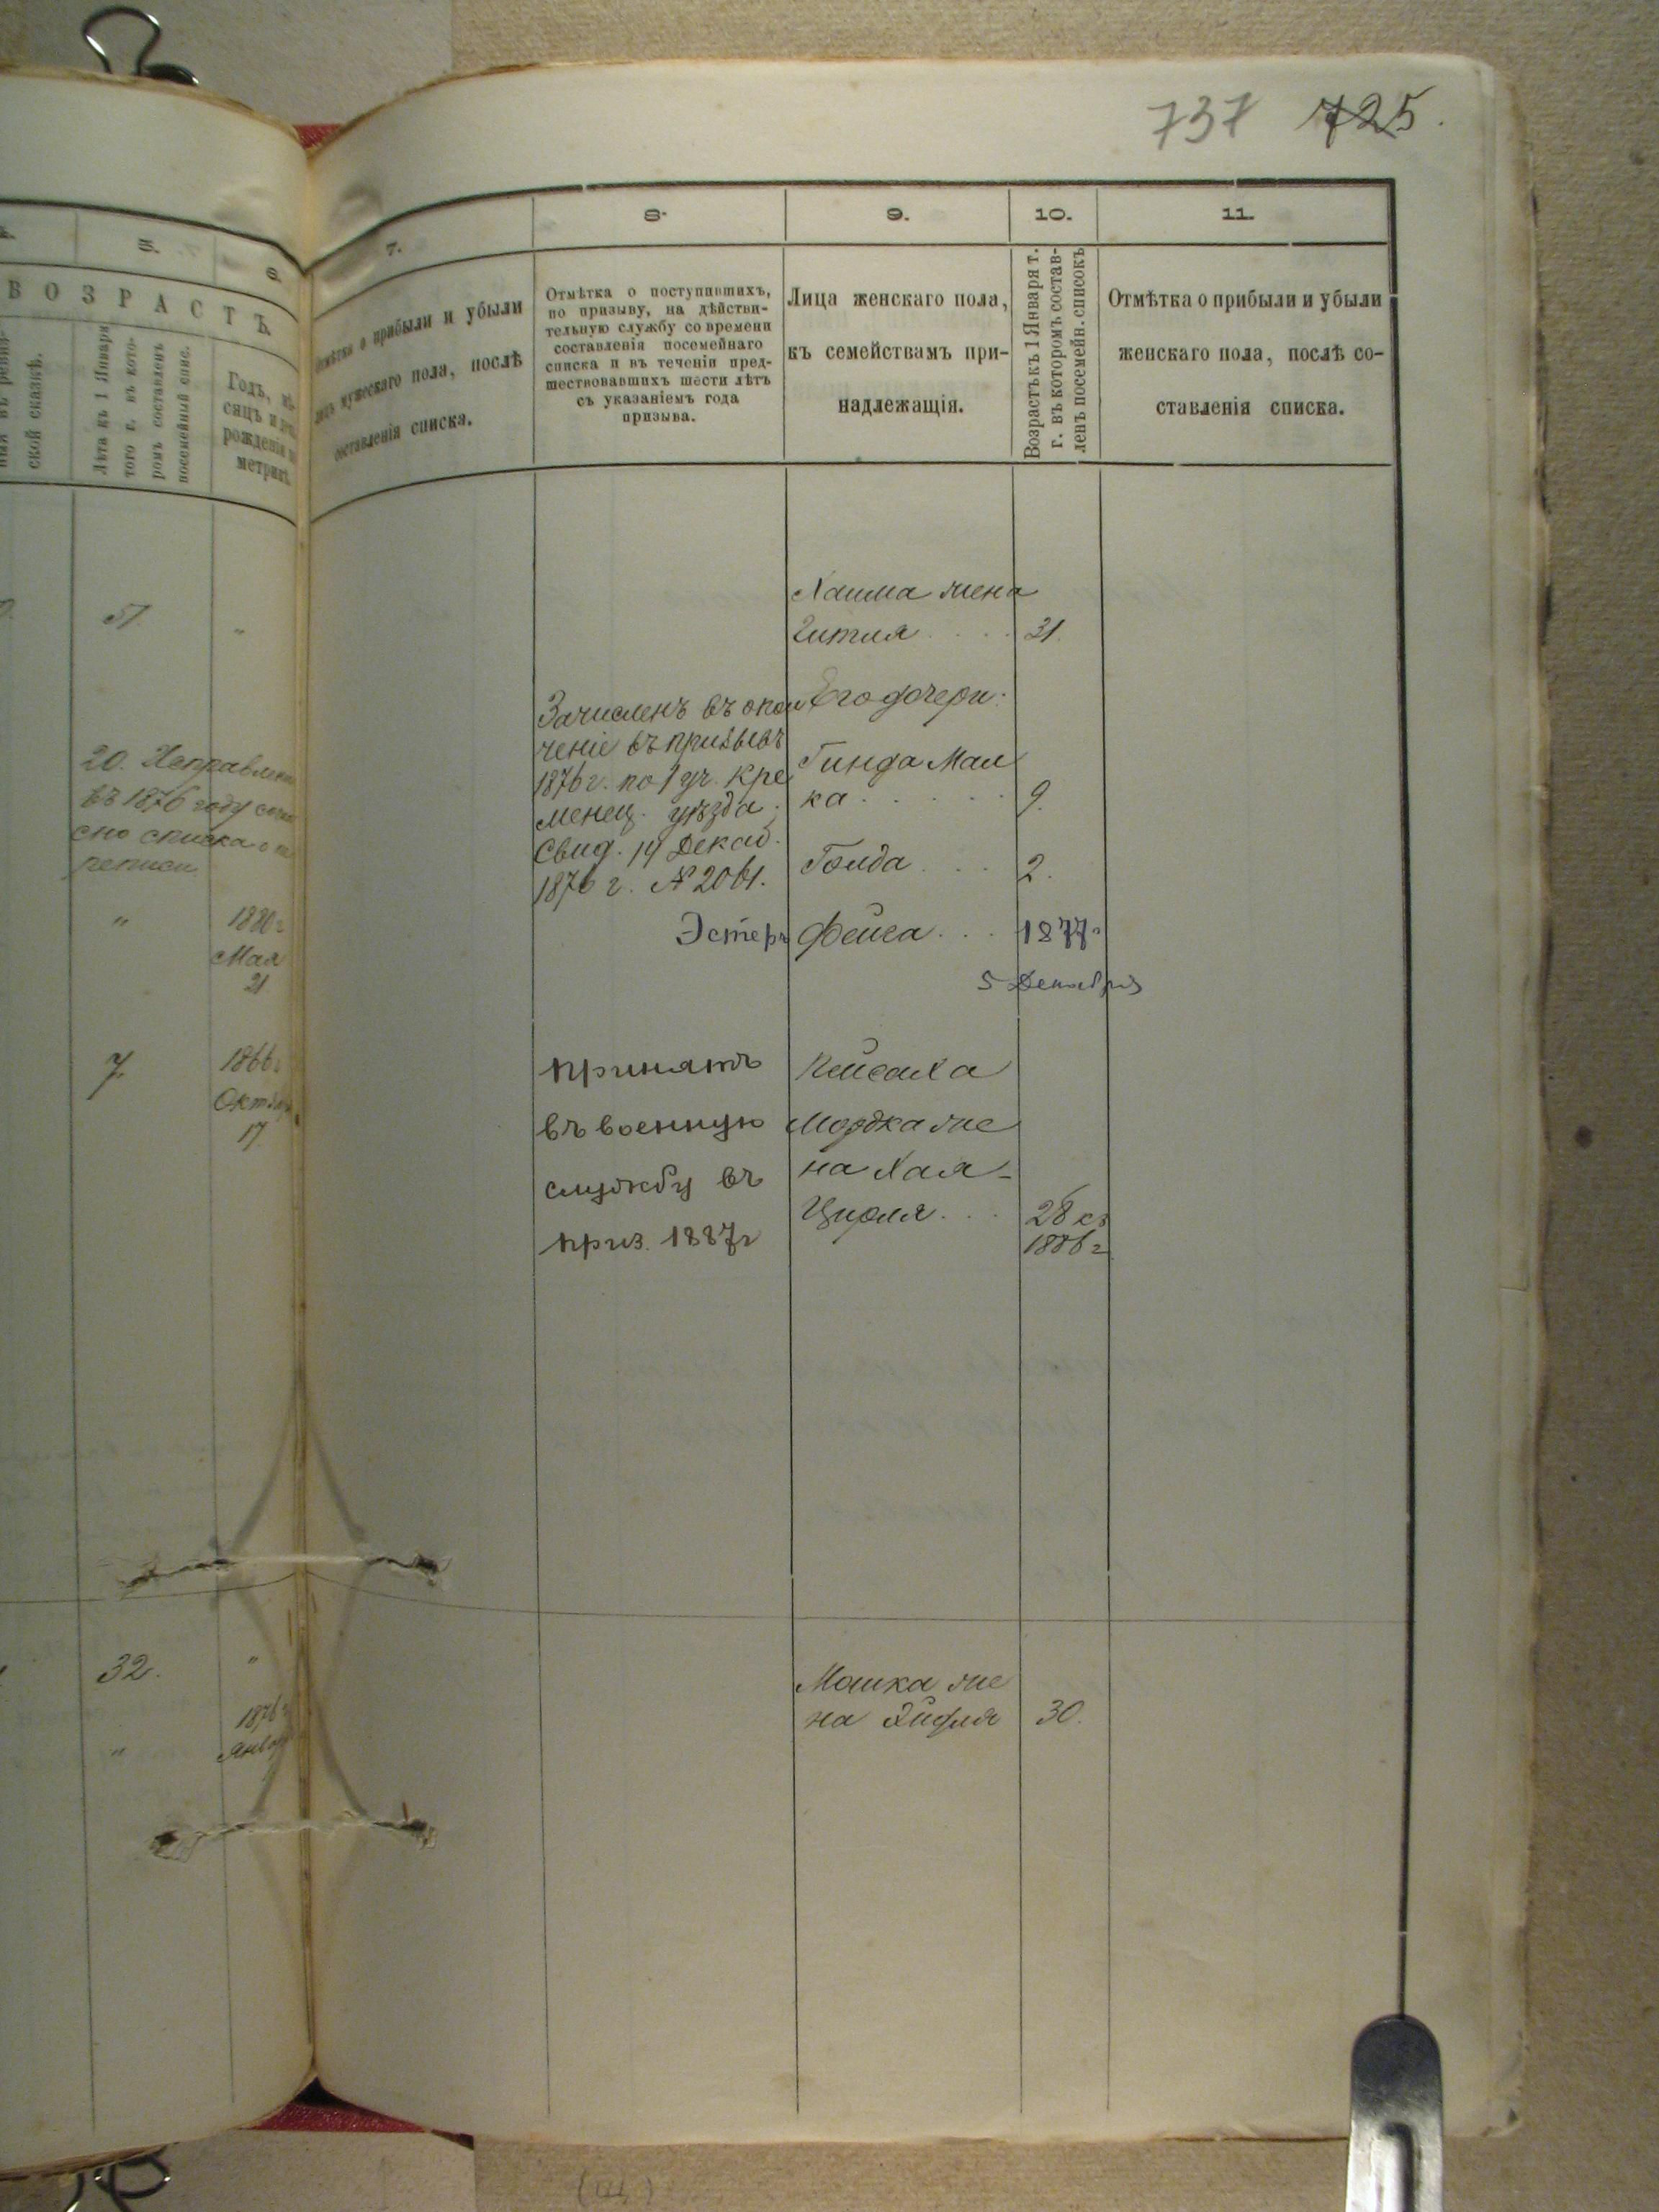 737 725.
5.
6.
7.
8.
9.
10.
11.
ВОЗРАСТЪ.
ской сказкѣ.
Лѣта къ 1 Января
того г. въ кото-
ромъ составленъ
посемейный спис.
Годъ, мѣ-
сяцъ и день
рожденія по
метрик.
Отмѣтка о прибыли и убыли
лицъ мужескаго пола, послѣ
составленія списка.
Отмѣтка о поступившихъ,
по призыву, на дѣйстви-
тельную службу со времени
составленія посемейнаго
списка и въ теченіи пред-
шествовавшихъ шести лѣтъ
съ указаніемъ года
призыва.
Лица женскаго пола,
къ семействамъ при-
надлежащія.
Возрастъ къ 1 Января т.
г. въ которомъ состав-
ленъ посемейн. списокъ
Отмѣтка о прибыли и убыли
женскаго пола, послѣ со-
ставленія списка.
51
"
Хаима жена
Гитля . . . . 31.
Его дочери:
Зачисленъ въ опол
ченіе въ призывъ
1876 г. по 1 уч. Кре
менец. уѣзда.
Свид. 14 Декаб.
1876 г. № 2061.
Гинда Мал
ка . . . . . 9.
Голда . . . 2.
20.
въ 1876 году согла
сно списка о пе
реписи
" 1880 г
Мая
21
Эстеръ Фейга . . . 1877 г
5 Декабря
7. 1866 г
Октяб
17
принятъ
въ военную
службу въ
приз. 1887 г
Пейсаха
Мордка же
на Хая-
Цирля . . . 28 къ
1886 г.
32. "
Мошка же
на Эйдля 30.
" 1876 г
Январ